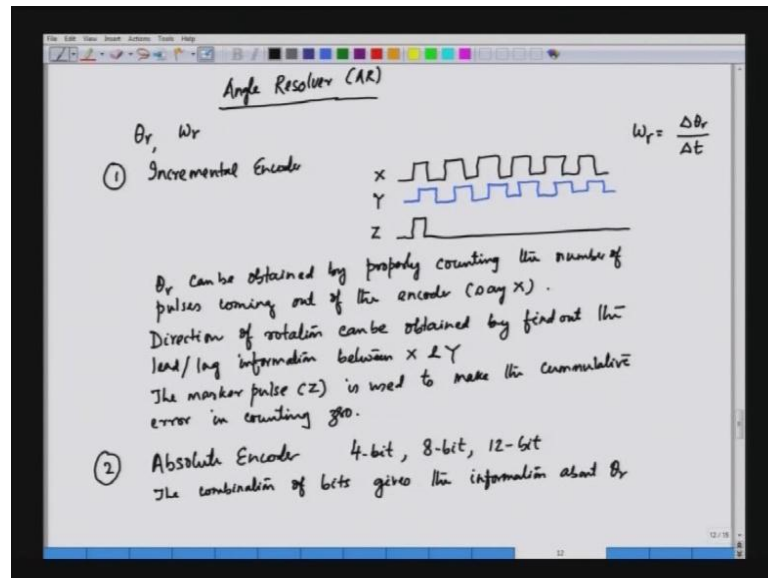 File Edit View Insert Actions Tools Help
Angle Resolver (AR)
θr, ωr
ωr = Δθr / Δt
① Incremental Encoder
X
Y
Z
θr can be obtained by properly counting the number of
pulses coming out of the encoder (say X).
Direction of rotation can be obtained by find out the
lead/lag information between X & Y
The marker pulse (Z) is used to make the cummulative
error in counting zero.
② Absolute Encoder 4-bit, 8-bit, 12-bit
The combination of bits gives the information about θr
12/18
12